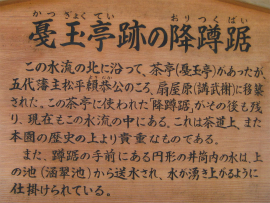 かつぎょくてい おりつくばい
戞玉亭跡の降蹲踞
この水流の北に沿って、茶亭(戞玉亭)があったが、
五代藩主松平頼恭公のころ、扇屋原(講武榭)に移築
された。この茶亭に使われた「降蹲踞」が、その後も残
り、現在もこの水流の中にある。これは茶道上、また
本園の歴史の上より貴重なものである。
また、蹲踞の手前にある円形の井筒内の水は、上
の池(涵翠池)から送水され、水が湧き上がるように
仕掛けられている。